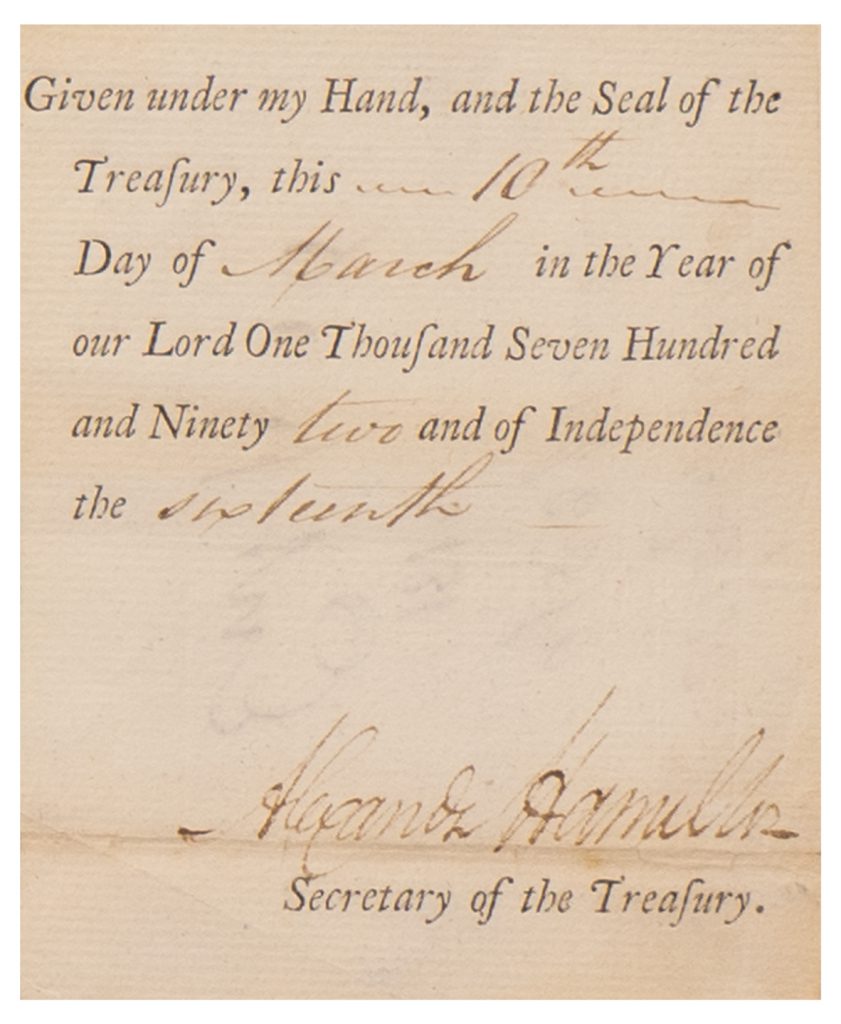 Given under my Hand, and the Seal of the
Treaſury, this 10th
Day of March in the Year of
our Lord One Thouſand Seven Hundred
and Ninety two and of Independence
the sixteenth
Alexander Hamilton
Secretary of the Treaſury.